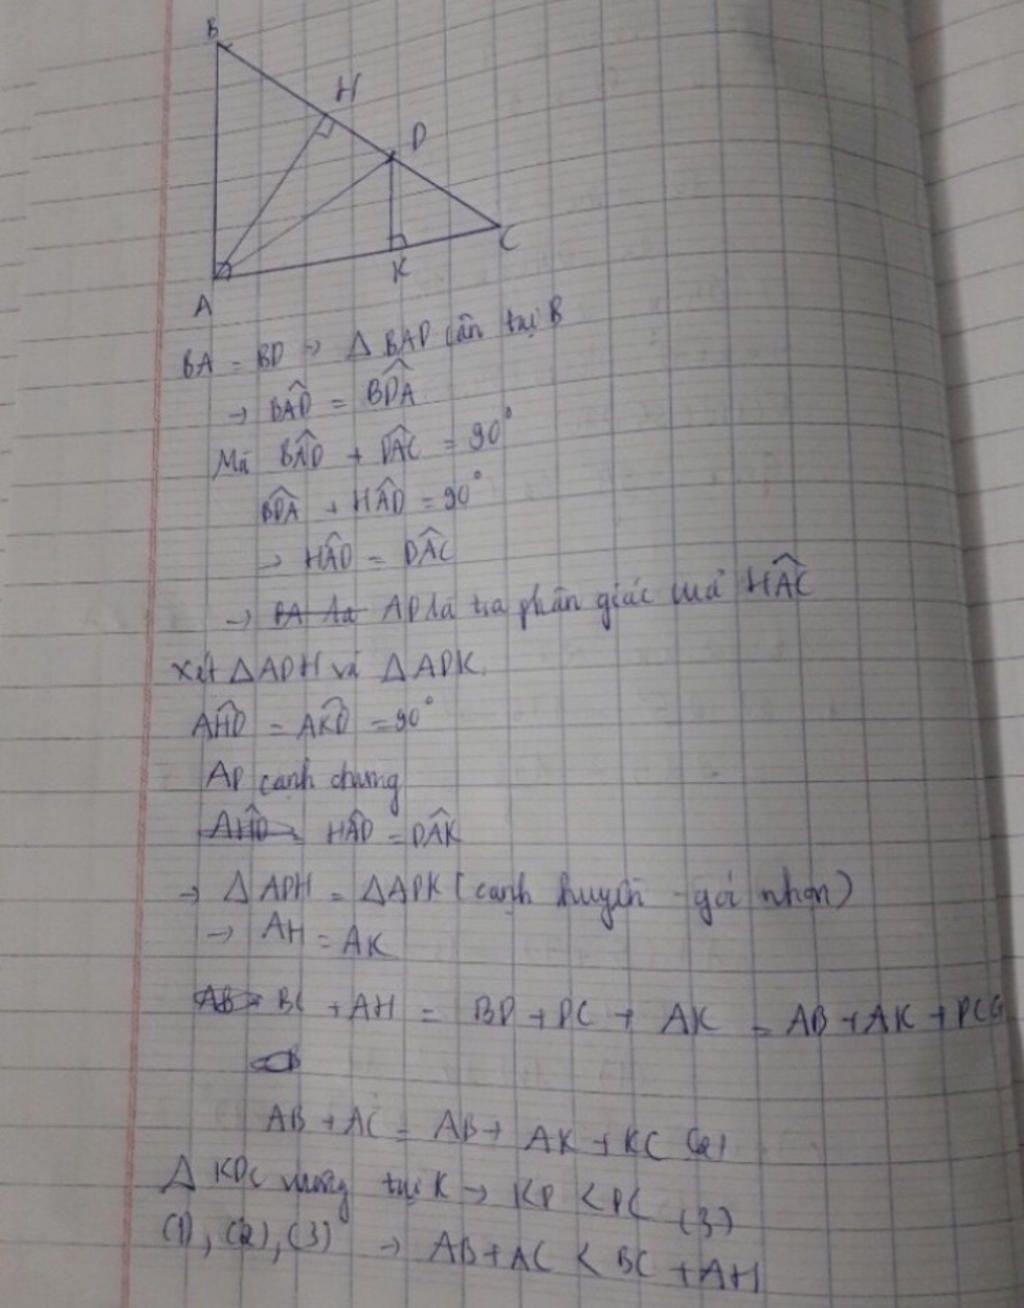 B
H
D
C
K
A
BA = BD → △ BAD cân tại B
→ BAD̂ = BDÂ
Mà BÂD + DÂC = 90°
BD̂A + HÂD = 90°
→ HÂD = DÂC
→ AD là tia phân giác của HÂC
Xét △ADH và △ADK.
AĤD = AK̂D = 90°
AD cạnh chung
HÂD = DÂK
→ △ ADH = △ADK (cạnh huyền - góc nhọn)
→ AH = AK
BC + AH = BD + DC + AK = AB + AK + DC
AB + AC = AB + AK + KC (2)
△ KDC vuông tại K → KD < DC (3)
(1), (2), (3) → AB + AC < BC + AH